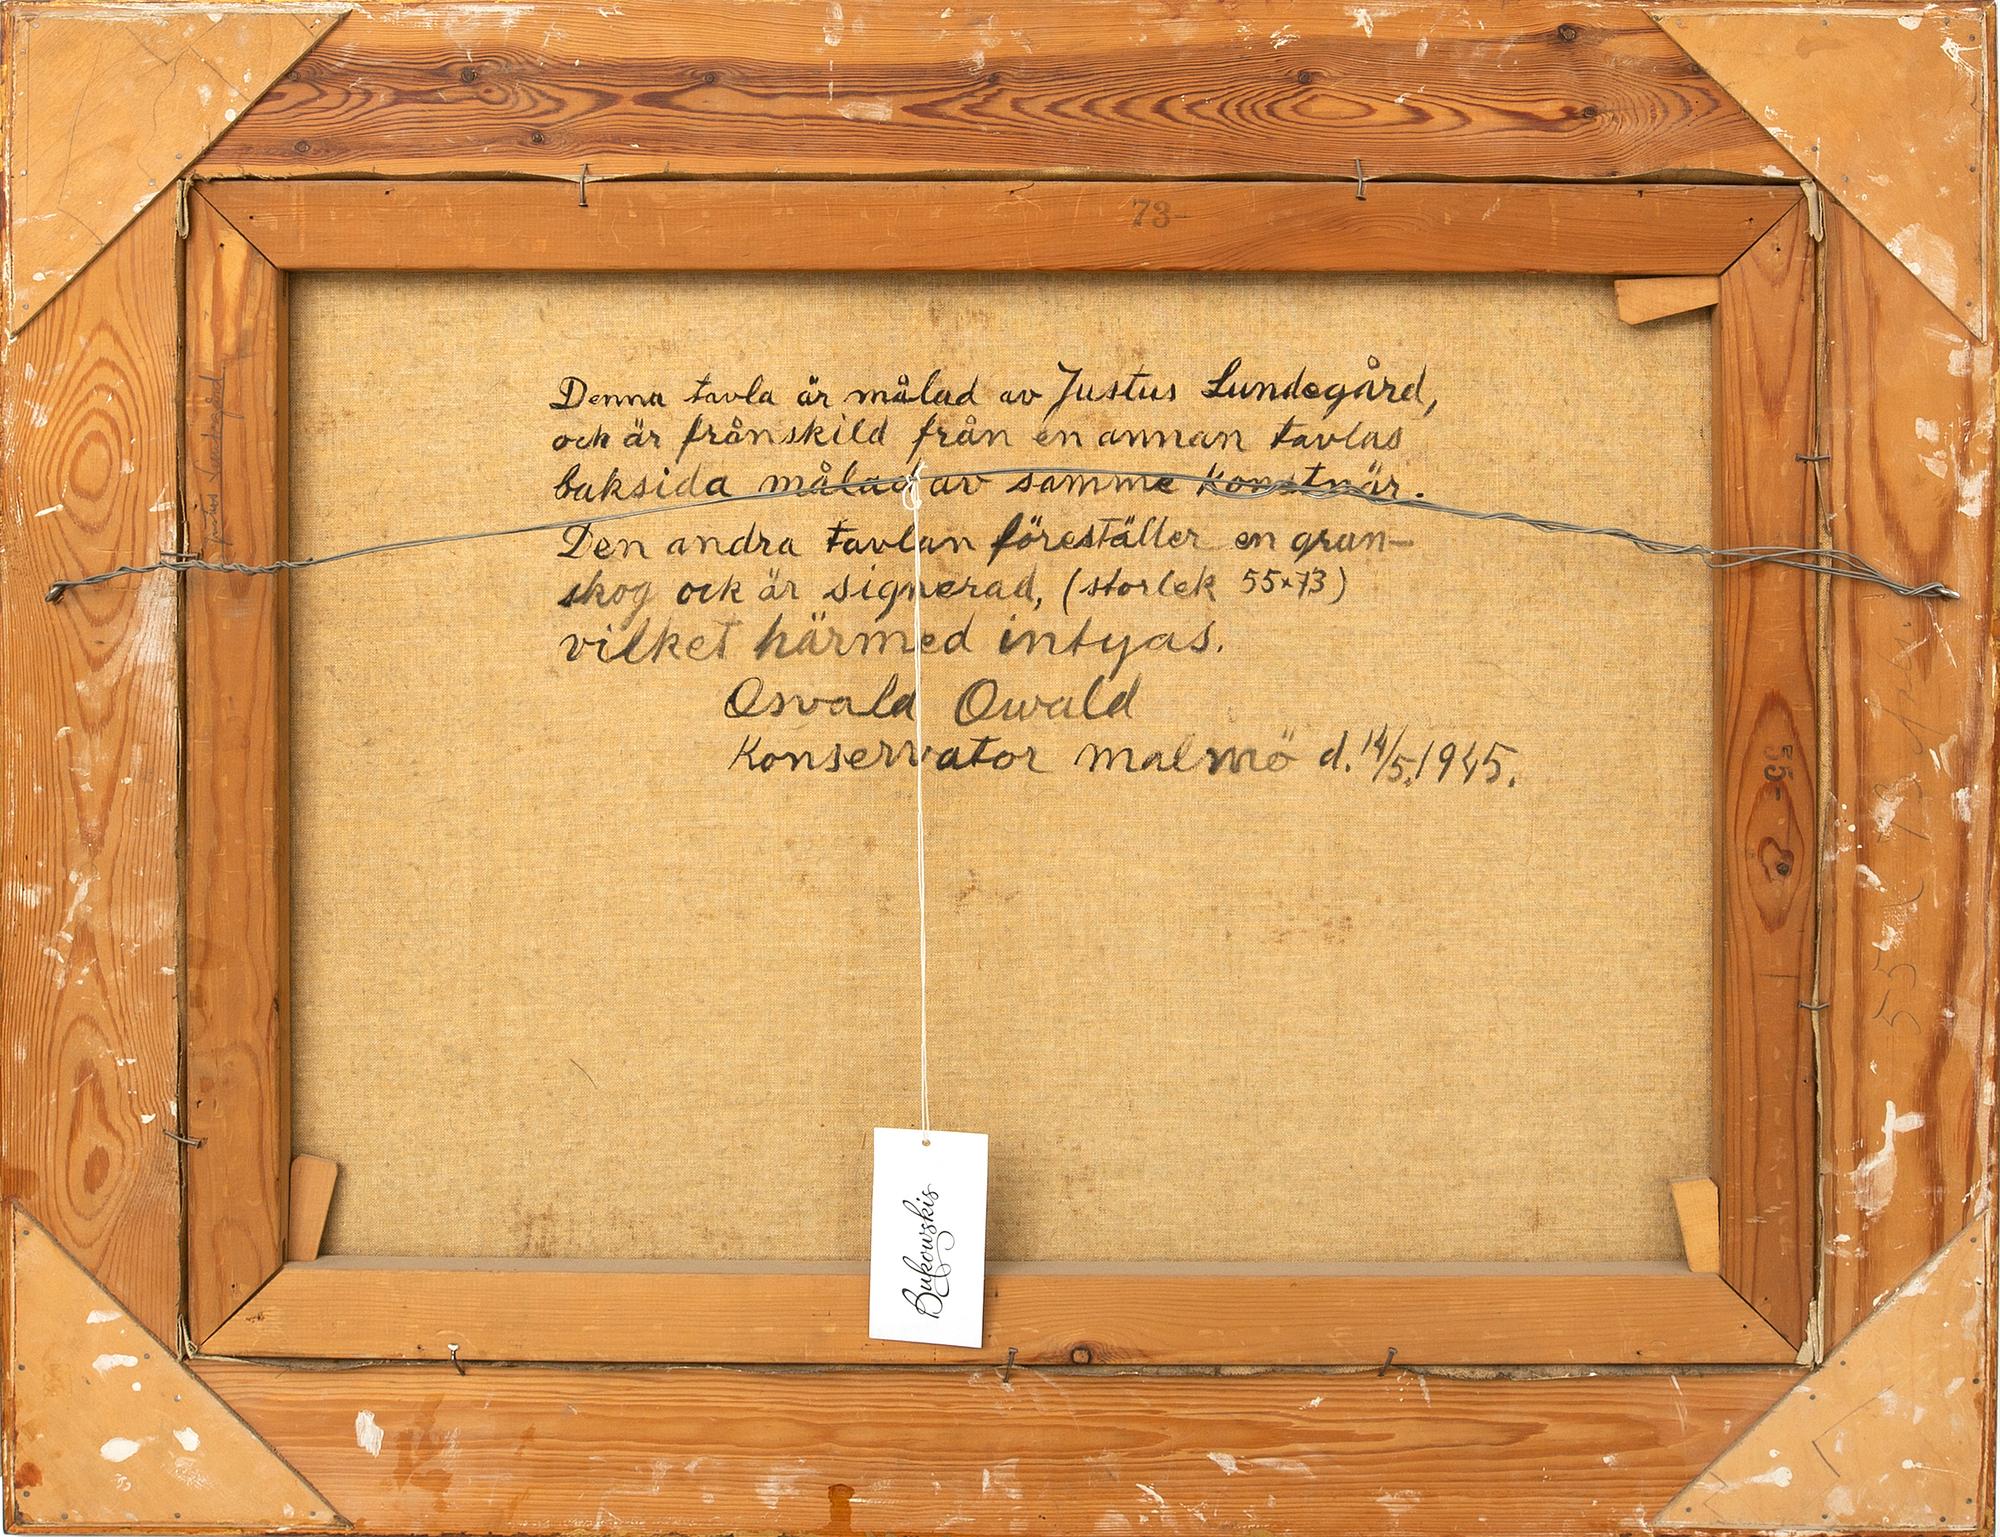 73-
Denna tavla är målad av Justus Lundegård,
och är frånskild från en annan tavlas
baksida målad av samme konstnär.
Den andra tavlan föreställer en gran-
skog och är signerad, (storlek 55×73)
vilket härmed intyas.
Osvald Owald
Konservator Malmö d. 14/5.1945.
Justus Lundegård
55-
55 x 73
Bukowskis